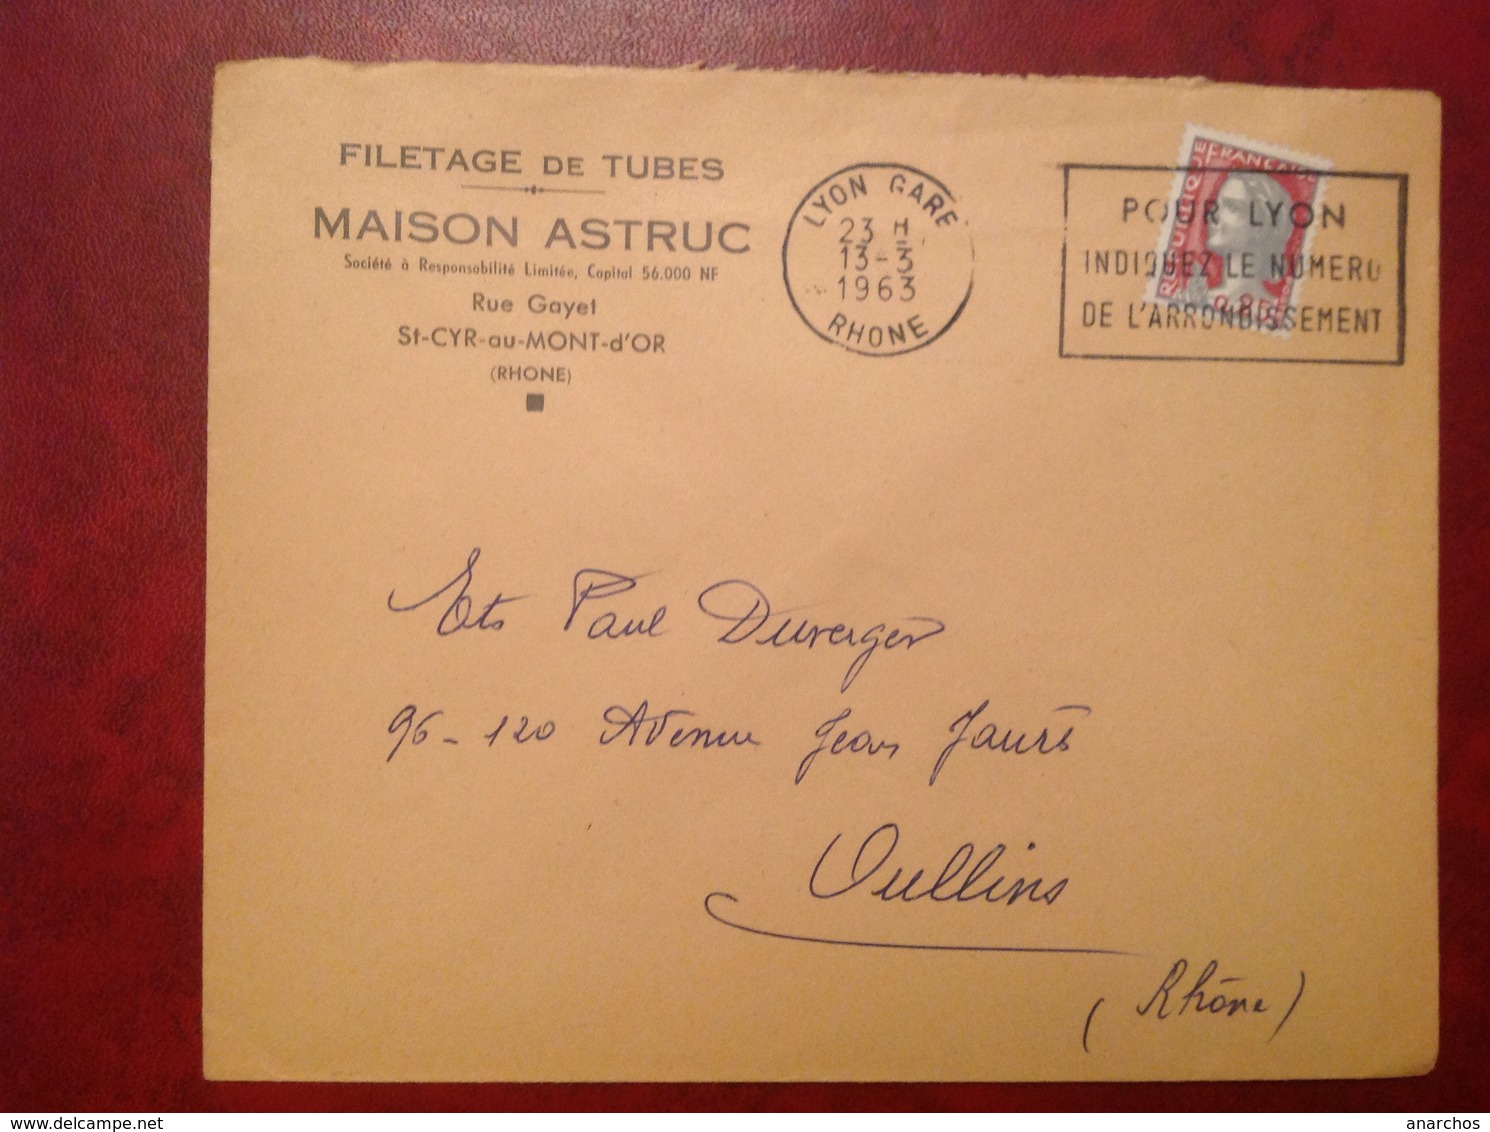 FILETAGE DE TUBES
MAISON ASTRUC
Société à Responsabilité Limitée, Capital 56.000 NF
Rue Gayet
St-CYR-au-MONT-d'OR
(RHONE)
LYON GARE
23 H
13-3
1963
RHONE
POUR LYON
INDIQUEZ LE NUMERO
DE L'ARRONDISSEMENT
REPUBLIQUE FRANÇAISE
Ets Paul Duverger
96-120 Avenue Jean Jaurès
Oullins
(Rhône)
delcampe.net
anarchos